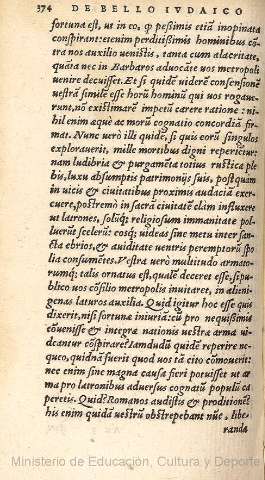 374 DE BELLO IVDAICO
fortuna est, ut in eo, ꝙ pessimis etiã inopinata
conspirant: etenim perditissimis hominibus cõ-
tra nos auxilio uenistis, tanta cum alacritate,
quãta nec in Barbaros aduocãte uos metropoli
uenire decuisset. Et si quidẽ uiderẽ consensionẽ
uestrã similẽ esse horũ hominũ qui uos rogaue-
runt, nõ existimarẽ impetũ carere ratione: ni-
hil enim æquè ac morũ cognatio concordiã fir-
mat. Nunc verò illi quidẽ, si quis eorũ singulos
explorauerit, mille mortibus digni reperiẽtur:
nam ludibria & purgamẽta totius rusticæ ple
bis, luxu absumptis patrimonijs suis, postquam
in uicis & ciuitatibus proximis audaciã exer-
cuere, postremò in sacrã ciuitatẽ clam influxere
ut latrones, soliq́; religiosum immanitate pol-
luerũt scelerũ: cosq́; uideas sine metu inter san-
cta ebrios, & auiditate uentris peremptorũ spo
lia consumẽtes. Vestra verò multitudo armato-
rumq́; talis ornatus est, qualẽ deceret esse, si pu-
blico uos cõsilio metropolis inuitaret, in alieni-
genas laturos auxilia. Quid igitur hoc esse quis
dixerit, nisi fortunæ iniuriã: cũ pro nequissimis
cõuenisse & integræ nationis uestræ arma vi-
deantur cõspirare? Iamdudũ quidẽ reperire ne-
queo, quidnã fuerit quod uos tã citò cõmouerit:
nec enim sine magna causa fieri potuisset ut ar
ma pro latronibus aduersus cognatũ populũ ca
peretis. Quid? Romanos audistis & proditionẽ?
his enim quidã uestrũ obstrepebant nũc, libe-
randæ
Ministerio de Educación, Cultura y Deporte